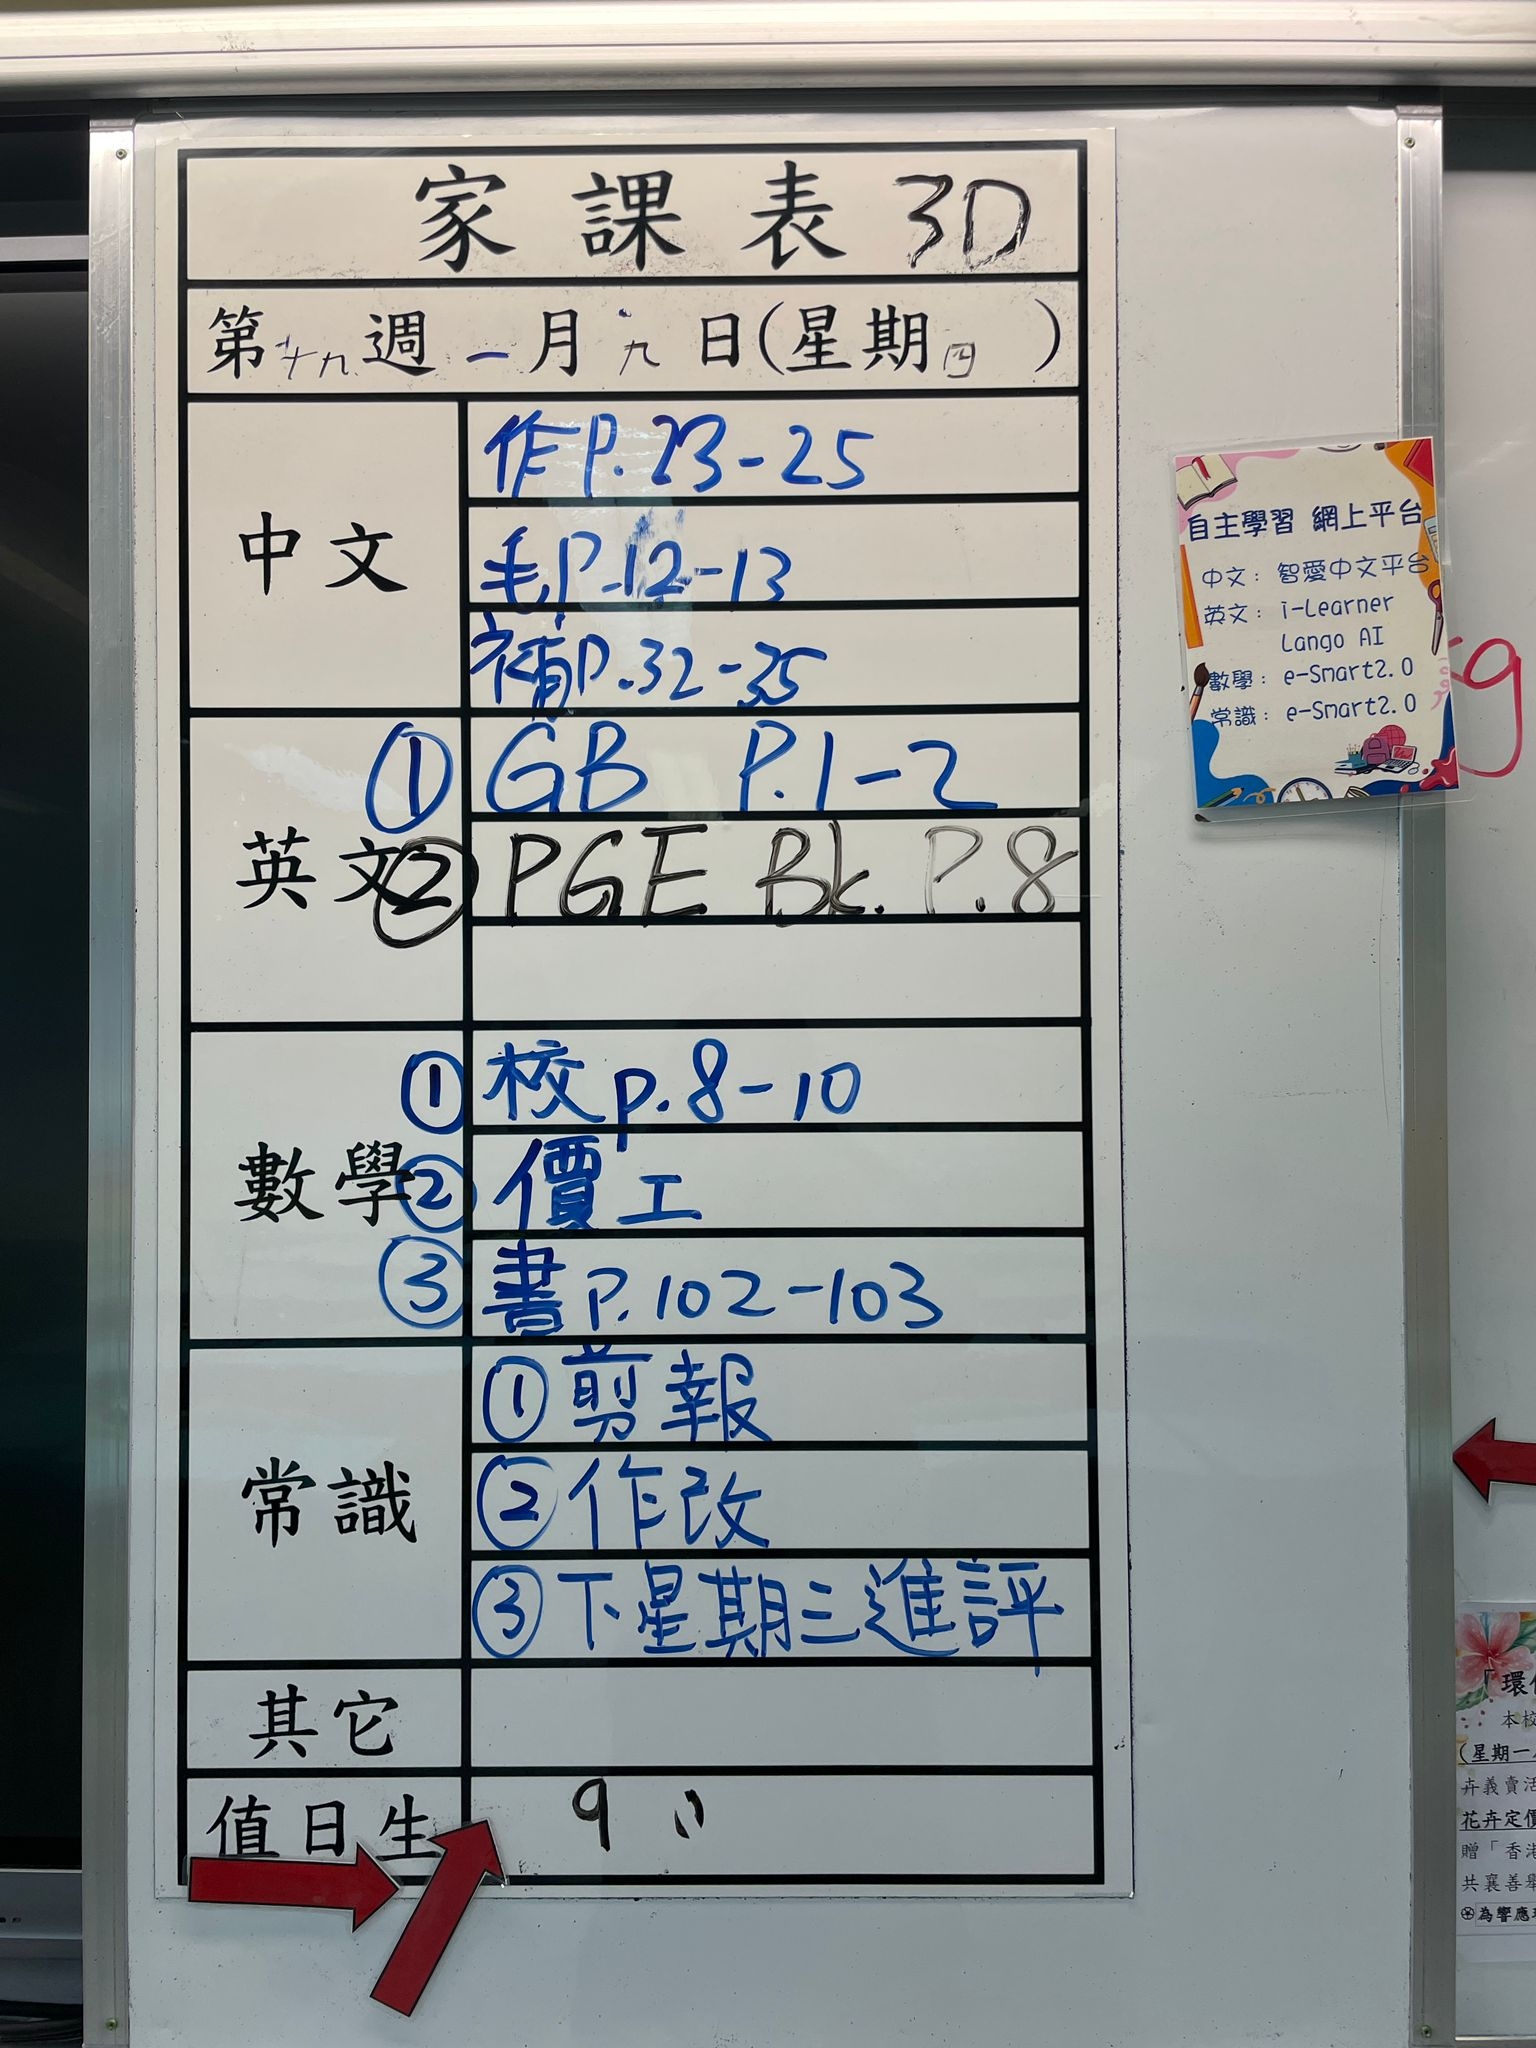 家課表 3D
第十九週 一月九日(星期四)
中文
作P.23-25
毛P.12-13
補P.32-35
英文
① GB P.1-2
② PGE Bk. P.8
數學
① 校 p.8-10
② 價工
③ 書 P.102-103
常識
① 剪報
② 作改
③ 下星期三進評
其它
值日生
9 11
自主學習 網上平台
中文: 智愛中文平台
英文: i-Learner
Lango AI
數學: e-Smart2.0
常識: e-Smart2.0
g
「環
本校
(星期一
卉義賣活
花卉定價
贈「香港
共襄善舉
為響應